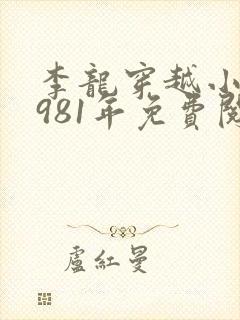 李龍穿越小
981年免費閱
盧紅曼